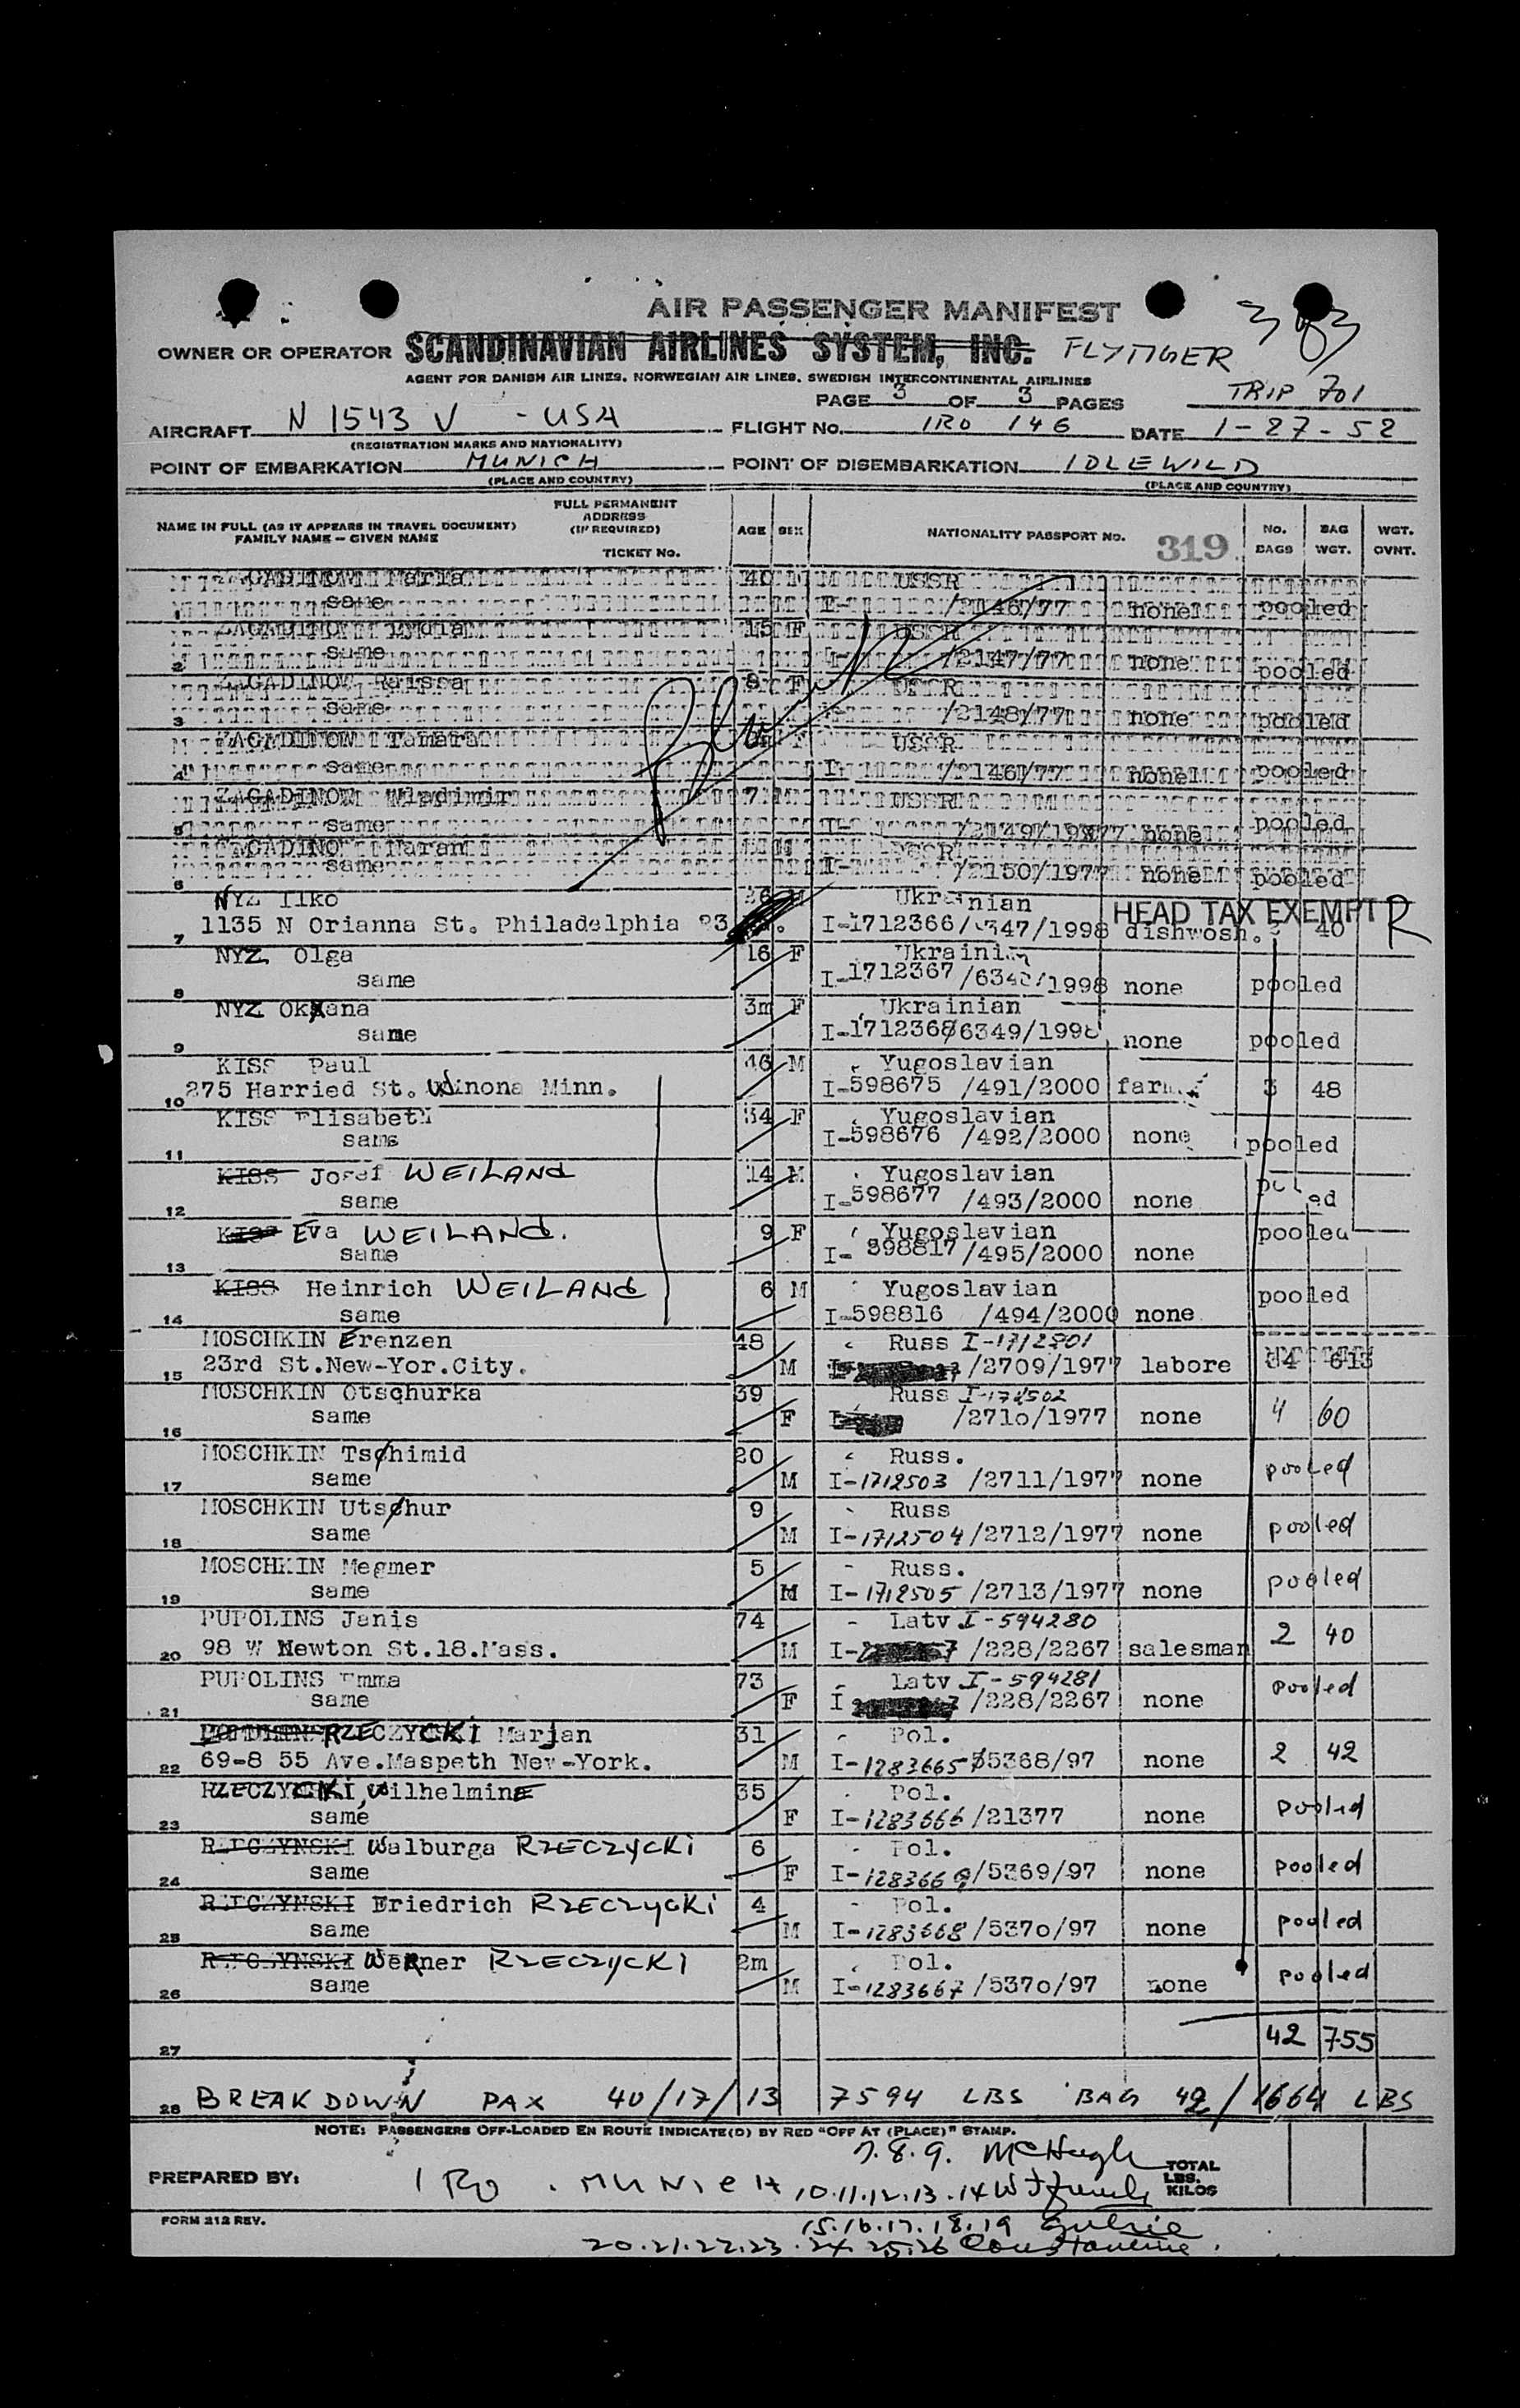 3 of 3
AIR PASSENGER MANIFEST
OWNER OR OPERATOR SCANDINAVIAN AIRLINES SYSTEM, INC. FLYTIGER
AGENT FOR DANISH AIR LINES, NORWEGIAN AIR LINES, SWEDISH INTERCONTINENTAL AIRLINES
PAGE 3 OF 3 PAGES TRIP 701
AIRCRAFT N 1543 V - USA FLIGHT No. IRO 146 DATE 1-27-52
(REGISTRATION MARKS AND NATIONALITY)
POINT OF EMBARKATION MUNICH POINT OF DISEMBARKATION IDLEWILD
(PLACE AND COUNTRY) (PLACE AND COUNTRY)
NAME IN FULL (AS IT APPEARS IN TRAVEL DOCUMENT) FAMILY NAME — GIVEN NAME FULL PERMANENT ADDRESS (IF REQUIRED) TICKET No. AGE SEX NATIONALITY PASSPORT NO. 319 No. BAGS BAG WGT. WGT. OVNT.
ZAGADINOW Maria 40 USSR
1 same I- /2146/77 none pooled
ZAGADINOW 15 F USSR
2 same I- /2147/77 none pooled
ZAGADINOW Raissa F USSR
3 same /2148/77 none pooled
ZAGADINOW Tamara F USSR
4 same I- /2146/77 none pooled
ZAGADINOW Wladimir 7 M USSR
5 same I- none pooled
same I- /2150/1977 none pooled
6
NYZ Ilko 26 M Ukrainian HEAD TAX EXEMPT R
7 1135 N Orianna St. Philadelphia 23 I-1712366/ 1998 dishwosh. 40
NYZ Olga 16 F Ukrainian
8 same I-1712367 /1998 none pooled
NYZ Oksana 3m F Ukrainian
9 same I-1712368/6349/1998 none pooled
KISS Paul 46 M Yugoslavian
10 275 Harried St. Winona Minn. I-598675 /491/2000 3 48
KISS Elisabeth 34 F Yugoslavian
11 same I-598676 /492/2000 none pooled
KISS Josef WEILAND 14 M Yugoslavian
12 same I-598677 /493/2000 none pooled
KISS Eva WEILAND. 9 F Yugoslavian pooled
13 same I- 598817 /495/2000 none
KISS Heinrich WEILAND 6 M Yugoslavian pooled
14 same I-598816 /494/2000 none
MOSCHKIN Erenzen 48 Russ
15 23rd St.New-Yor.City. M /2709/1977 labore
MOSCHKIN Otschurka 39 Russ
16 same F /2710/1977 none 4 60
MOSCHKIN Tschimid 20 Russ.
17 same M I-1712503 /2711/1977 none pooled
MOSCHKIN Utschur 9 Russ
18 same M I-1712504 /2712/1977 none pooled
MOSCHKIN Megmer 5 Russ.
19 same M I-1712505 /2713/1977 none pooled
PUPOLINS Janis 74 Latv I-594280
20 98 W Newton St.18.Mass. M I- /228/2267 salesman 2 40
PUPOLINS Emma 73 Latv I-594281
21 same F I /228/2267 none pooled
RZECZYCKI Marjan 31 Pol.
22 69-8 55 Ave.Maspeth New-York. M I-1283665 /5368/97 none 2 42
RZECZYCKI, Wilhelmine 35 Pol.
23 same F I-1283666/21377 none pooled
RZECZYNSKI Walburga RZECZYCKI 6 Pol.
24 same F I-1283669/5369/97 none pooled
RZECZYNSKI Friedrich RZECZYCKI 4 Pol.
25 same M I-1283668/5370/97 none pooled
RZECZYNSKI Werner RZECZYCKI 2m Pol.
26 same M I-1283667/5370/97 none pooled
27 42 755
28 BREAKDOWN PAX 40/17/13 7594 LBS BAG 42/1664 LBS
NOTE: PASSENGERS OFF-LOADED EN ROUTE INDICATE(D) BY RED "OFF AT (PLACE)" STAMP.
7.8.9. McHugh
PREPARED BY: IRO . MUNICH 10.11.12.13.14 TOTAL LBS. KILOS
FORM 212 REV. 15.16.17.18.19
20.21.22.23.24.25.26 Constantine.